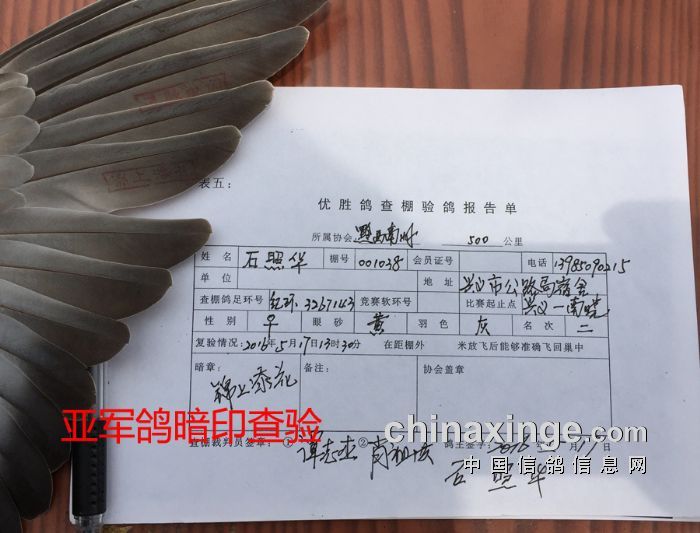 表五：
优胜鸽查棚验鸽报告单
所属协会 500 公里
姓名 石照华 棚号 001038 会员证号 电话 13985090215
单位 地址 兴义市公路局宿舍
查棚鸽足环号 3267143 竞赛软环号 比赛起止点 兴义一南
性别 眼砂 黄 羽色 灰 名次 二
复验情况：2016年5月17日13时30分 在距棚外 米放飞后能够准确飞回巢中
暗章： 备注： 协会盖章
锦上添花
亚军鸽暗印查验
chinaxinge.com
查棚裁判员签章：① 谭志杰 ② 鸽主签字：2016 5 17日
中国信鸽信息网
石照华